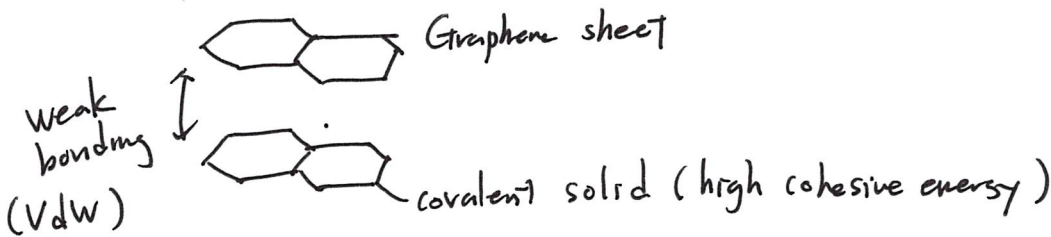 Graphene sheet
weak
bonding
(VdW)
covalent solid (high cohesive energy)